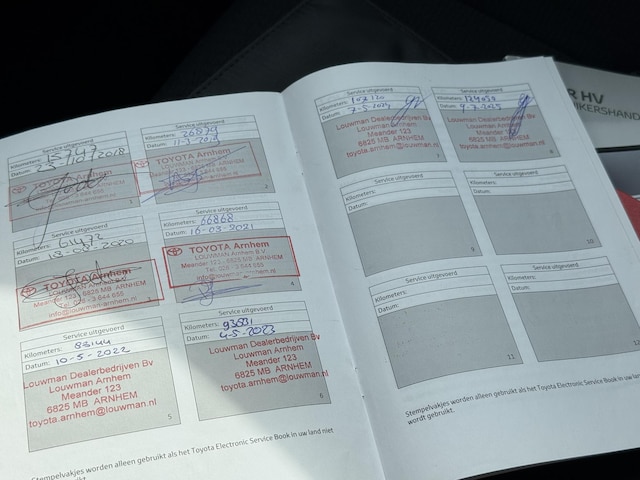 Service uitgevoerd
Kilometers:
Datum: 25/10/2018
TOYOTA Arnhem
1
Service uitgevoerd
Kilometers: 26879
Datum:
TOYOTA Arnhem
2
Service uitgevoerd
Kilometers:
Datum: 18-03-2020
TOYOTA Arnhem
LOUWMAN ARNHEM
Meander 123 - 6825 MB ARNHEM
info@louwman-arnhem.nl
3
Service uitgevoerd
Kilometers: 66868
Datum: 16-03-2021
TOYOTA Arnhem
LOUWMAN ARNHEM B.V.
Meander 123 - 6825 MB ARNHEM
4
Service uitgevoerd
Kilometers: 83144
Datum: 10-5-2022
Louwman Dealerbedrijven Bv
Louwman Arnhem
Meander 123
6825 MB ARNHEM
toyota.arnhem@louwman.nl
5
Service uitgevoerd
Kilometers: 93831
Datum: 4-5-2023
Louwman Dealerbedrijven Bv
Louwman Arnhem
Meander 123
6825 MB ARNHEM
toyota.arnhem@louwman.nl
6
Stempelvakjes worden alleen gebruikt als het Toyota Electronic Service Book in uw land niet
Service uitgevoerd
Kilometers: 107120
Datum: 7-5-2024
Louwman Dealerbedrijven Bv
Louwman Arnhem
Meander 123
6825 MB ARNHEM
toyota.arnhem@louwman.nl
7
Service uitgevoerd
Kilometers:
Datum: 9-7-2025
Louwman Dealerbedrijven Bv
Louwman Arnhem
Meander 123
6825 MB ARNHEM
toyota.arnhem@louwman.nl
8
Service uitgevoerd
Kilometers:
Datum:
9
Service uitgevoerd
Kilometers:
Datum:
10
Service uitgevoerd
Kilometers:
Datum:
11
Service uitgevoerd
Kilometers:
Datum:
12
Stempelvakjes worden alleen gebruikt als het Toyota Electronic Service Book in uw land
wordt gebruikt.
R HV